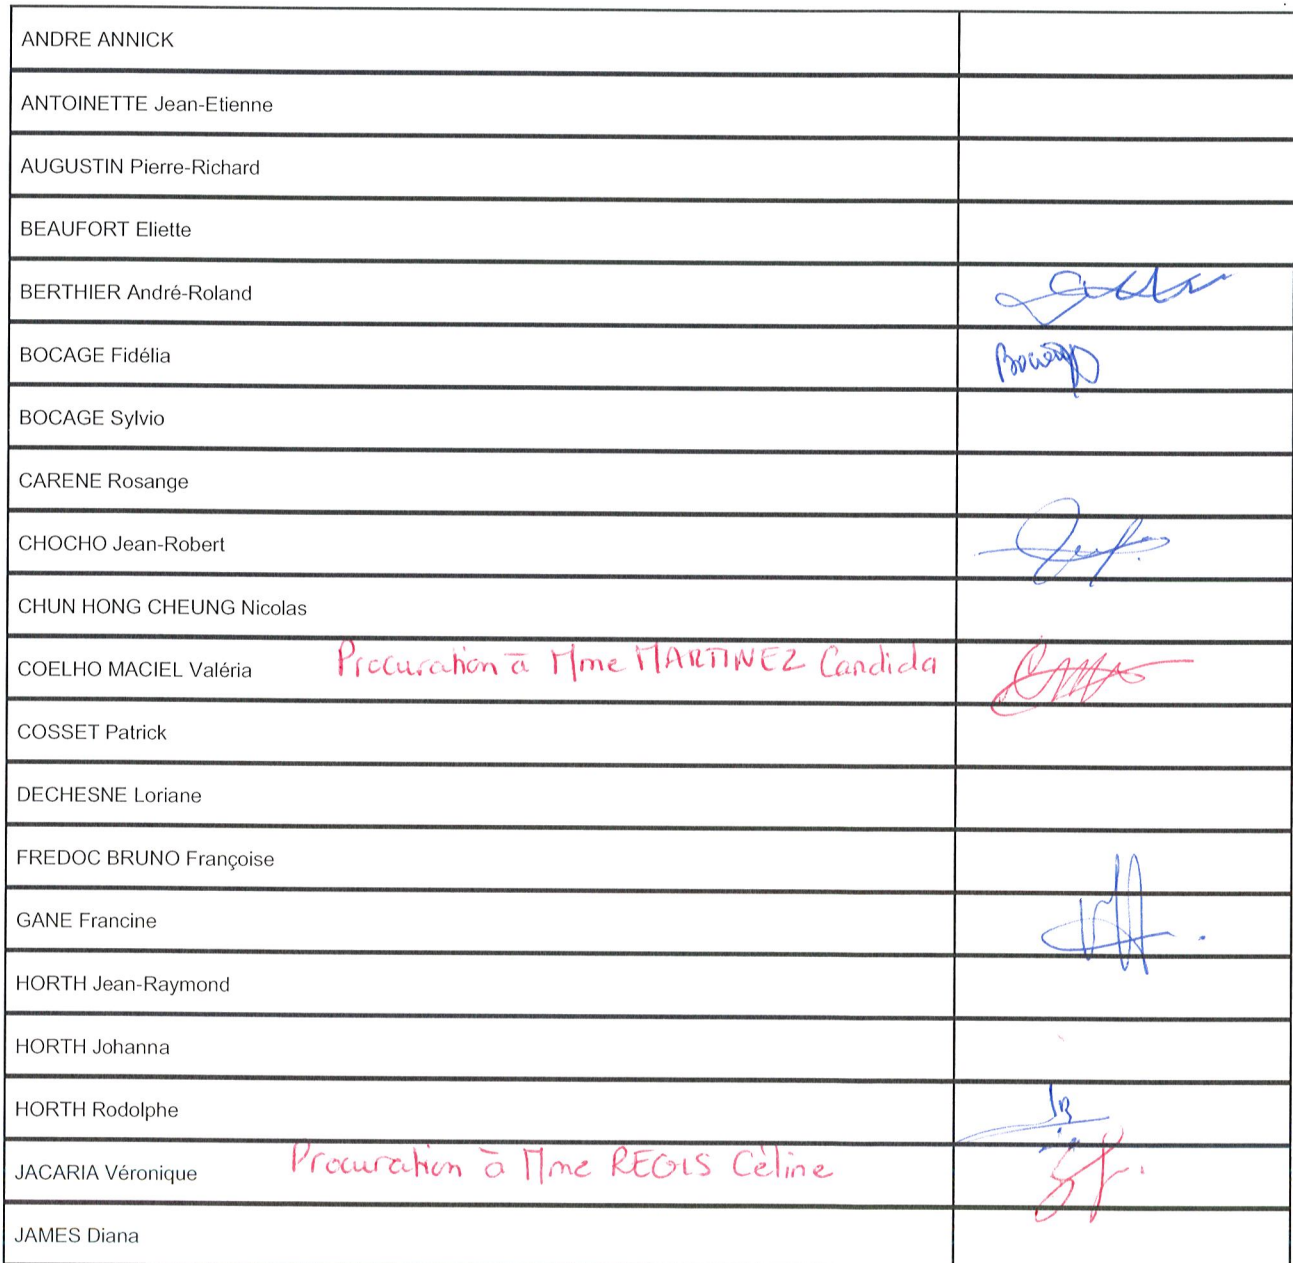 ANDRE ANNICK
ANTOINETTE Jean-Etienne
AUGUSTIN Pierre-Richard
BEAUFORT Eliette
BERTHIER André-Roland
BOCAGE Fidélia
BOCAGE Sylvio
CARENE Rosange
CHOCHO Jean-Robert
CHUN HONG CHEUNG Nicolas
COELHO MACIEL Valéria Procuration à Mme MARTINEZ Candida
COSSET Patrick
DECHESNE Loriane
FREDOC BRUNO Françoise
GANE Francine
HORTH Jean-Raymond
HORTH Johanna
HORTH Rodolphe
JACARIA Véronique Procuration à Mme REGIS Céline
JAMES Diana